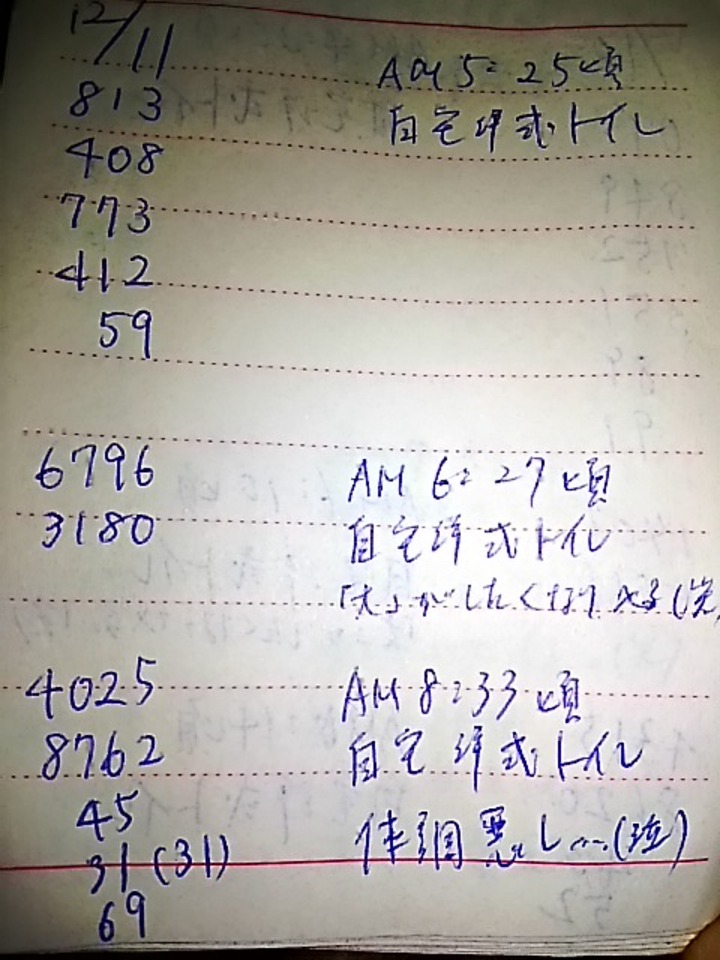 12/11
AM 5:25頃
813
自宅洋式トイレ
408
773
412
59
6796
AM 6:27頃
3180
自宅洋式トイレ
「大」がしたくなり
4025
AM 8:33頃
8762
自宅洋式トイレ
45
体調悪し…(泣)
31(31)
69